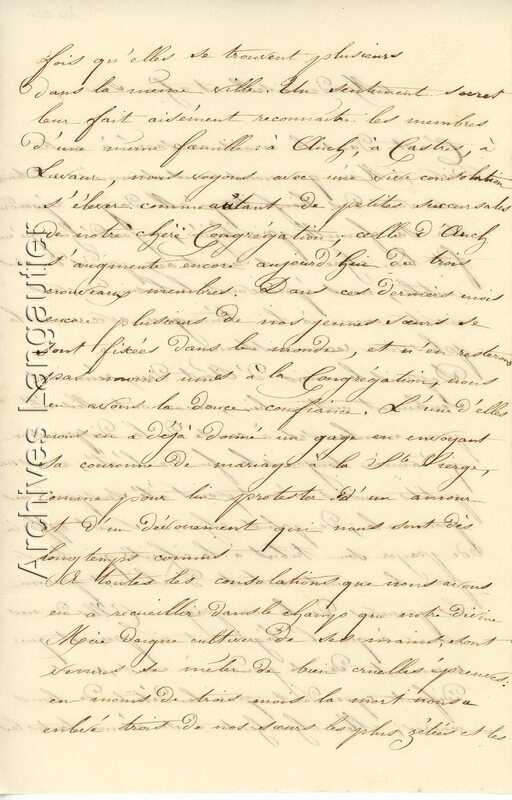 fois qu'elles se trouvent plusieurs
dans la même ville. Un sentiment secret
leur fait aisément reconnaitre les membres
d'une même famille à Auch, à Castres, à
Lavaur, nous voyons avec une vive consolation
s'élever comme autant de petites succursales
de notre chère Congrégation, celle d'Auch
s'augmente encore aujourd'hui de trois
nouveaux membres. Dans ces derniers mois
encore plusieurs de nos jeunes sœurs se
sont fixées dans le monde, et n'en resteront
pas moins unies à la Congrégation, nous
en avons la douce confiance. L'une d'elles
nous en a déjà donné un gage en envoyant
sa couronne de mariage à la Ste Vierge,
comme pour lui protester d'un amour
et d'un dévouement qui nous sont dès
longtemps connus.
A toutes les consolations que nous avons
eu à recueillir dans le champ que notre Divine
Mère daigne cultiver de ses mains, sont
venues se mêler de bien cruelles épreuves:
en moins de trois mois la mort nous a
enlevé trois de nos sœurs les plus zélées et les
Archives Langautier